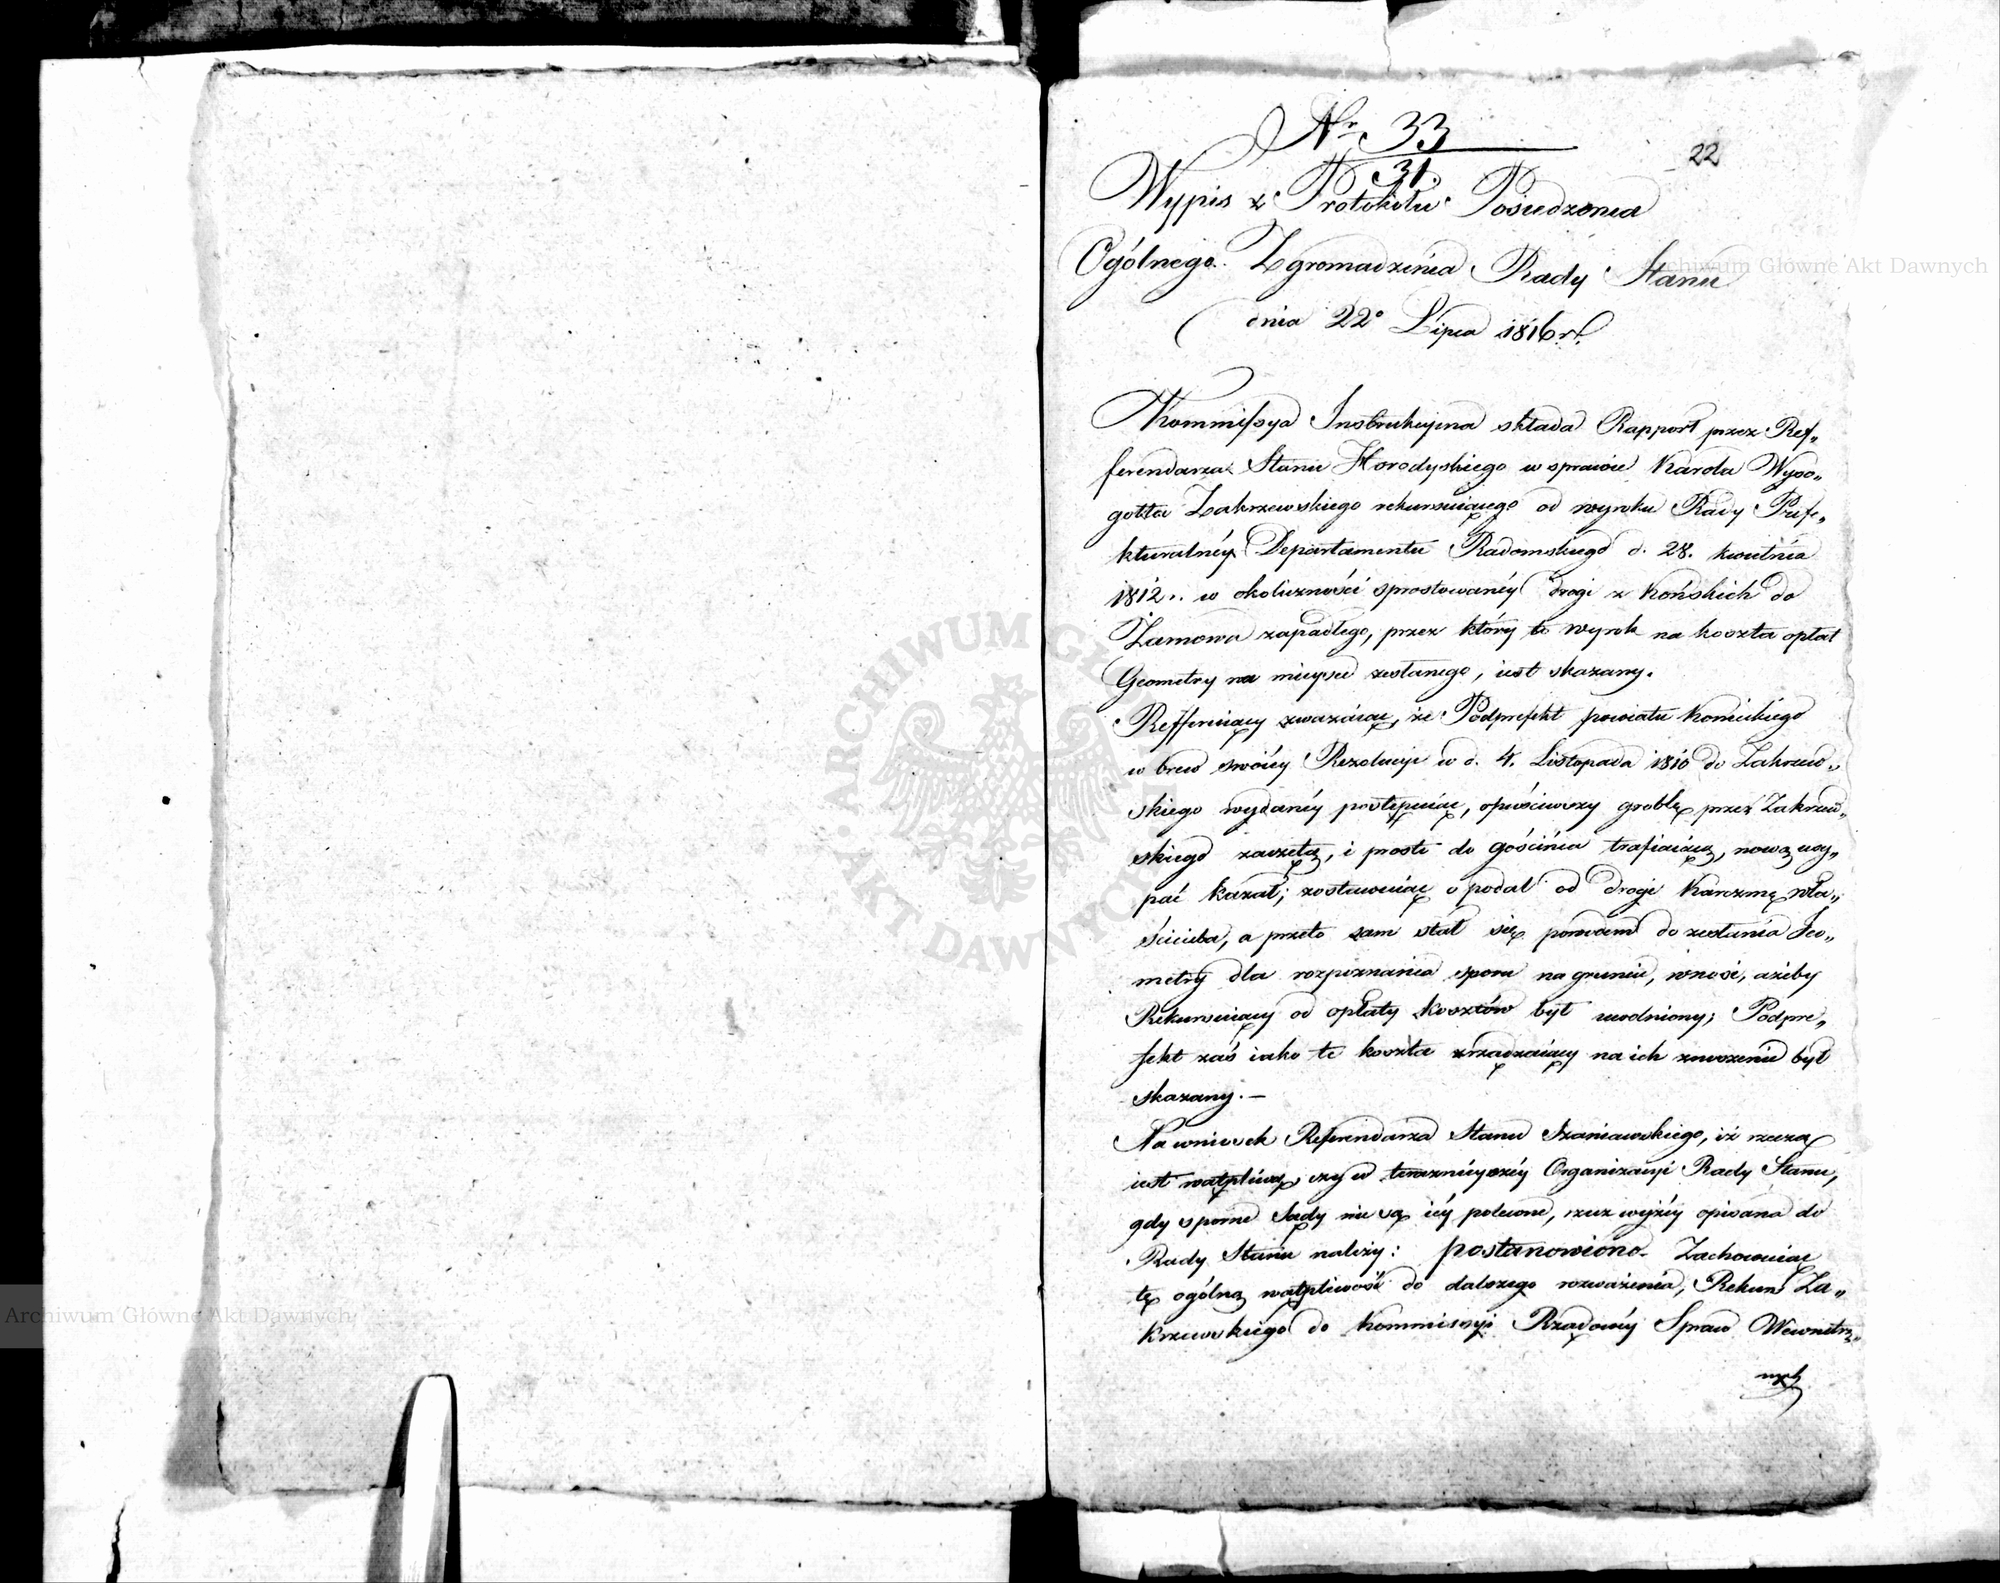 Nr 33
31.
22
Wypis z Protokółu Posiedzenia
Ogólnego Zgromadzenia Rady Stanu
dnia 22° Lipca 1816 r.
Kommissya Instrukcyina składa Rapport przez Ref„
ferendarza Stanu Horodyskiego w sprawie Karola Wyso„
gotta Zakrzewskiego rekursuiącego od wyroku Rady Prefe„
kturalnéy Departamentu Radomskiego d. 28. kwietnia
1812.. w okoliczności sprostowanéy drogi z Końskich do
Żarnowa zapadłego, przez który to wyrok na koszta opłat
Geometry na mieysce zesłanego, iest skazany.
Refferuiący zważaiąc, że Podprefekt powiatu Konickiego
w brew swóiey Rezolucyi w d. 4. Listopada 1810 do Zakrzew„
skiego wydanéy postępuiąc, opuściwszy groblę przez Zakrzew„
skiego zaczętą, i prosto do gościńca trafiaiącą, nową usy„
pać kazał; zostawuiąc opodal od drogi Karczmę wła„
ściciela, a przeto sam stał się powodem do zesłania Jeo„
metry dla rozpoznania sporu na gruncie, wnosi, ażeby
Rekursuiący od opłaty kosztów był uwolniony; Podpre„
fekt zaś iako te koszta zrządzaiący na ich znoszenie był
skazany. —
Na wniosek Referendarza Stanu Szaniawskiego, iż rzeczą
iest wątpliwą, czy w teraznieyszéy Organizacyi Rady Stanu,
gdy sporne Sądy nie są iéy polecone, rzecz wyżéy opisana do
Rady Stanu należy: postanowiono. Zachowuiąc
tę ogólną wątpliwość do dalszego rozważenia, Rekurs Za„
krzewskiego do Kommissyi Rządowéy Spraw Wewnętrz„
nych
Archiwum Główne Akt Dawnych
Archiwum Główne Akt Dawnych
ARCHIWUM GŁÓWNE AKT DAWNYCH